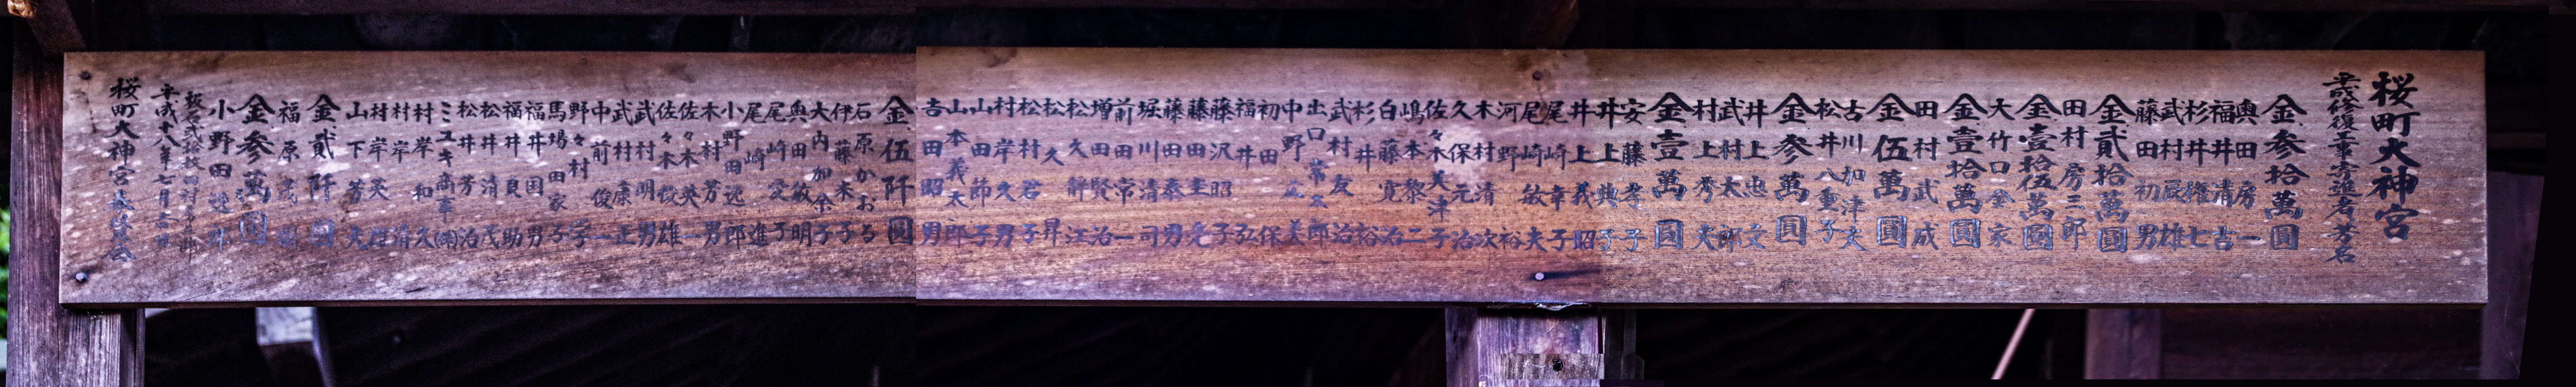 桜町大神宮
平成修復工事寄進者芳名
金参拾萬圓
奥田房一
福井清吉
杉井権七
武村辰雄
藤田初男
金貮拾萬圓
田村房三郎
金壹拾伍萬圓
大竹口金家
金壹拾萬圓
田村武成
金伍萬圓
古川加津夫
松井八重子
金参萬圓
井上忠文
武村太郎
村上秀夫
金壹萬圓
安藤孝子
井上典子
井上義昭
尾崎幸子
尾崎敏夫
河野裕
木村清次
久保元治
佐々木美津子
嶋本黎二
白藤寛治
杉井裕
武村友治
出口常太郎
中野正美
初田保
福井弘
藤沢昭子
藤田圭允
藤田泰男
堀川清司
前田常一
増田賢治
松久辭江
松久昇
松村君子
村岸久男
山田節子
山本義太郎
吉田昭男
金伍阡圓
石原かおる
伊藤末子
大内加奈子
奥田敏明
尾崎愛子
尾崎進
小野田逸郎
木村芳男
佐々木英一
佐々木俊雄
武村明男
武村康正
中前俊一
野々村学
馬場田家子
福井国男
福井良助
松井清茂
松井芳治
ミユキ商事㈱
村岸和久
村岸清
村岸英雄
山下芳夫
金貮阡圓
福原茂樹
金参萬圓
小野田逸郎
平成十八年七月吉日
桜町大神宮奉賛会